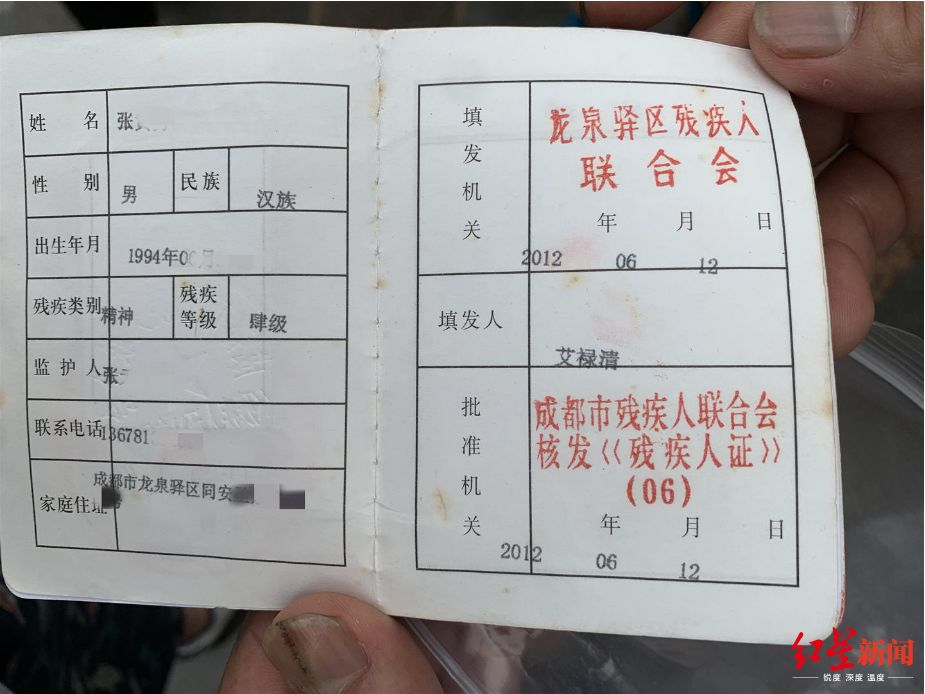 姓 名 张
性 别 男 民族 汉族
出生年月 1994年0
残疾类别 精神 残疾等级 肆级
监护人 张
联系电话 136781
家庭住址 成都市龙泉驿区同安
填发机关
龙泉驿区残疾人
联合会
年 月 日
2012 06 12
填发人 艾禄清
批准机关
成都市残疾人联合会
核发《残疾人证》
(06)
年 月 日
2012 06 12
红星新闻
锐度 深度 温度